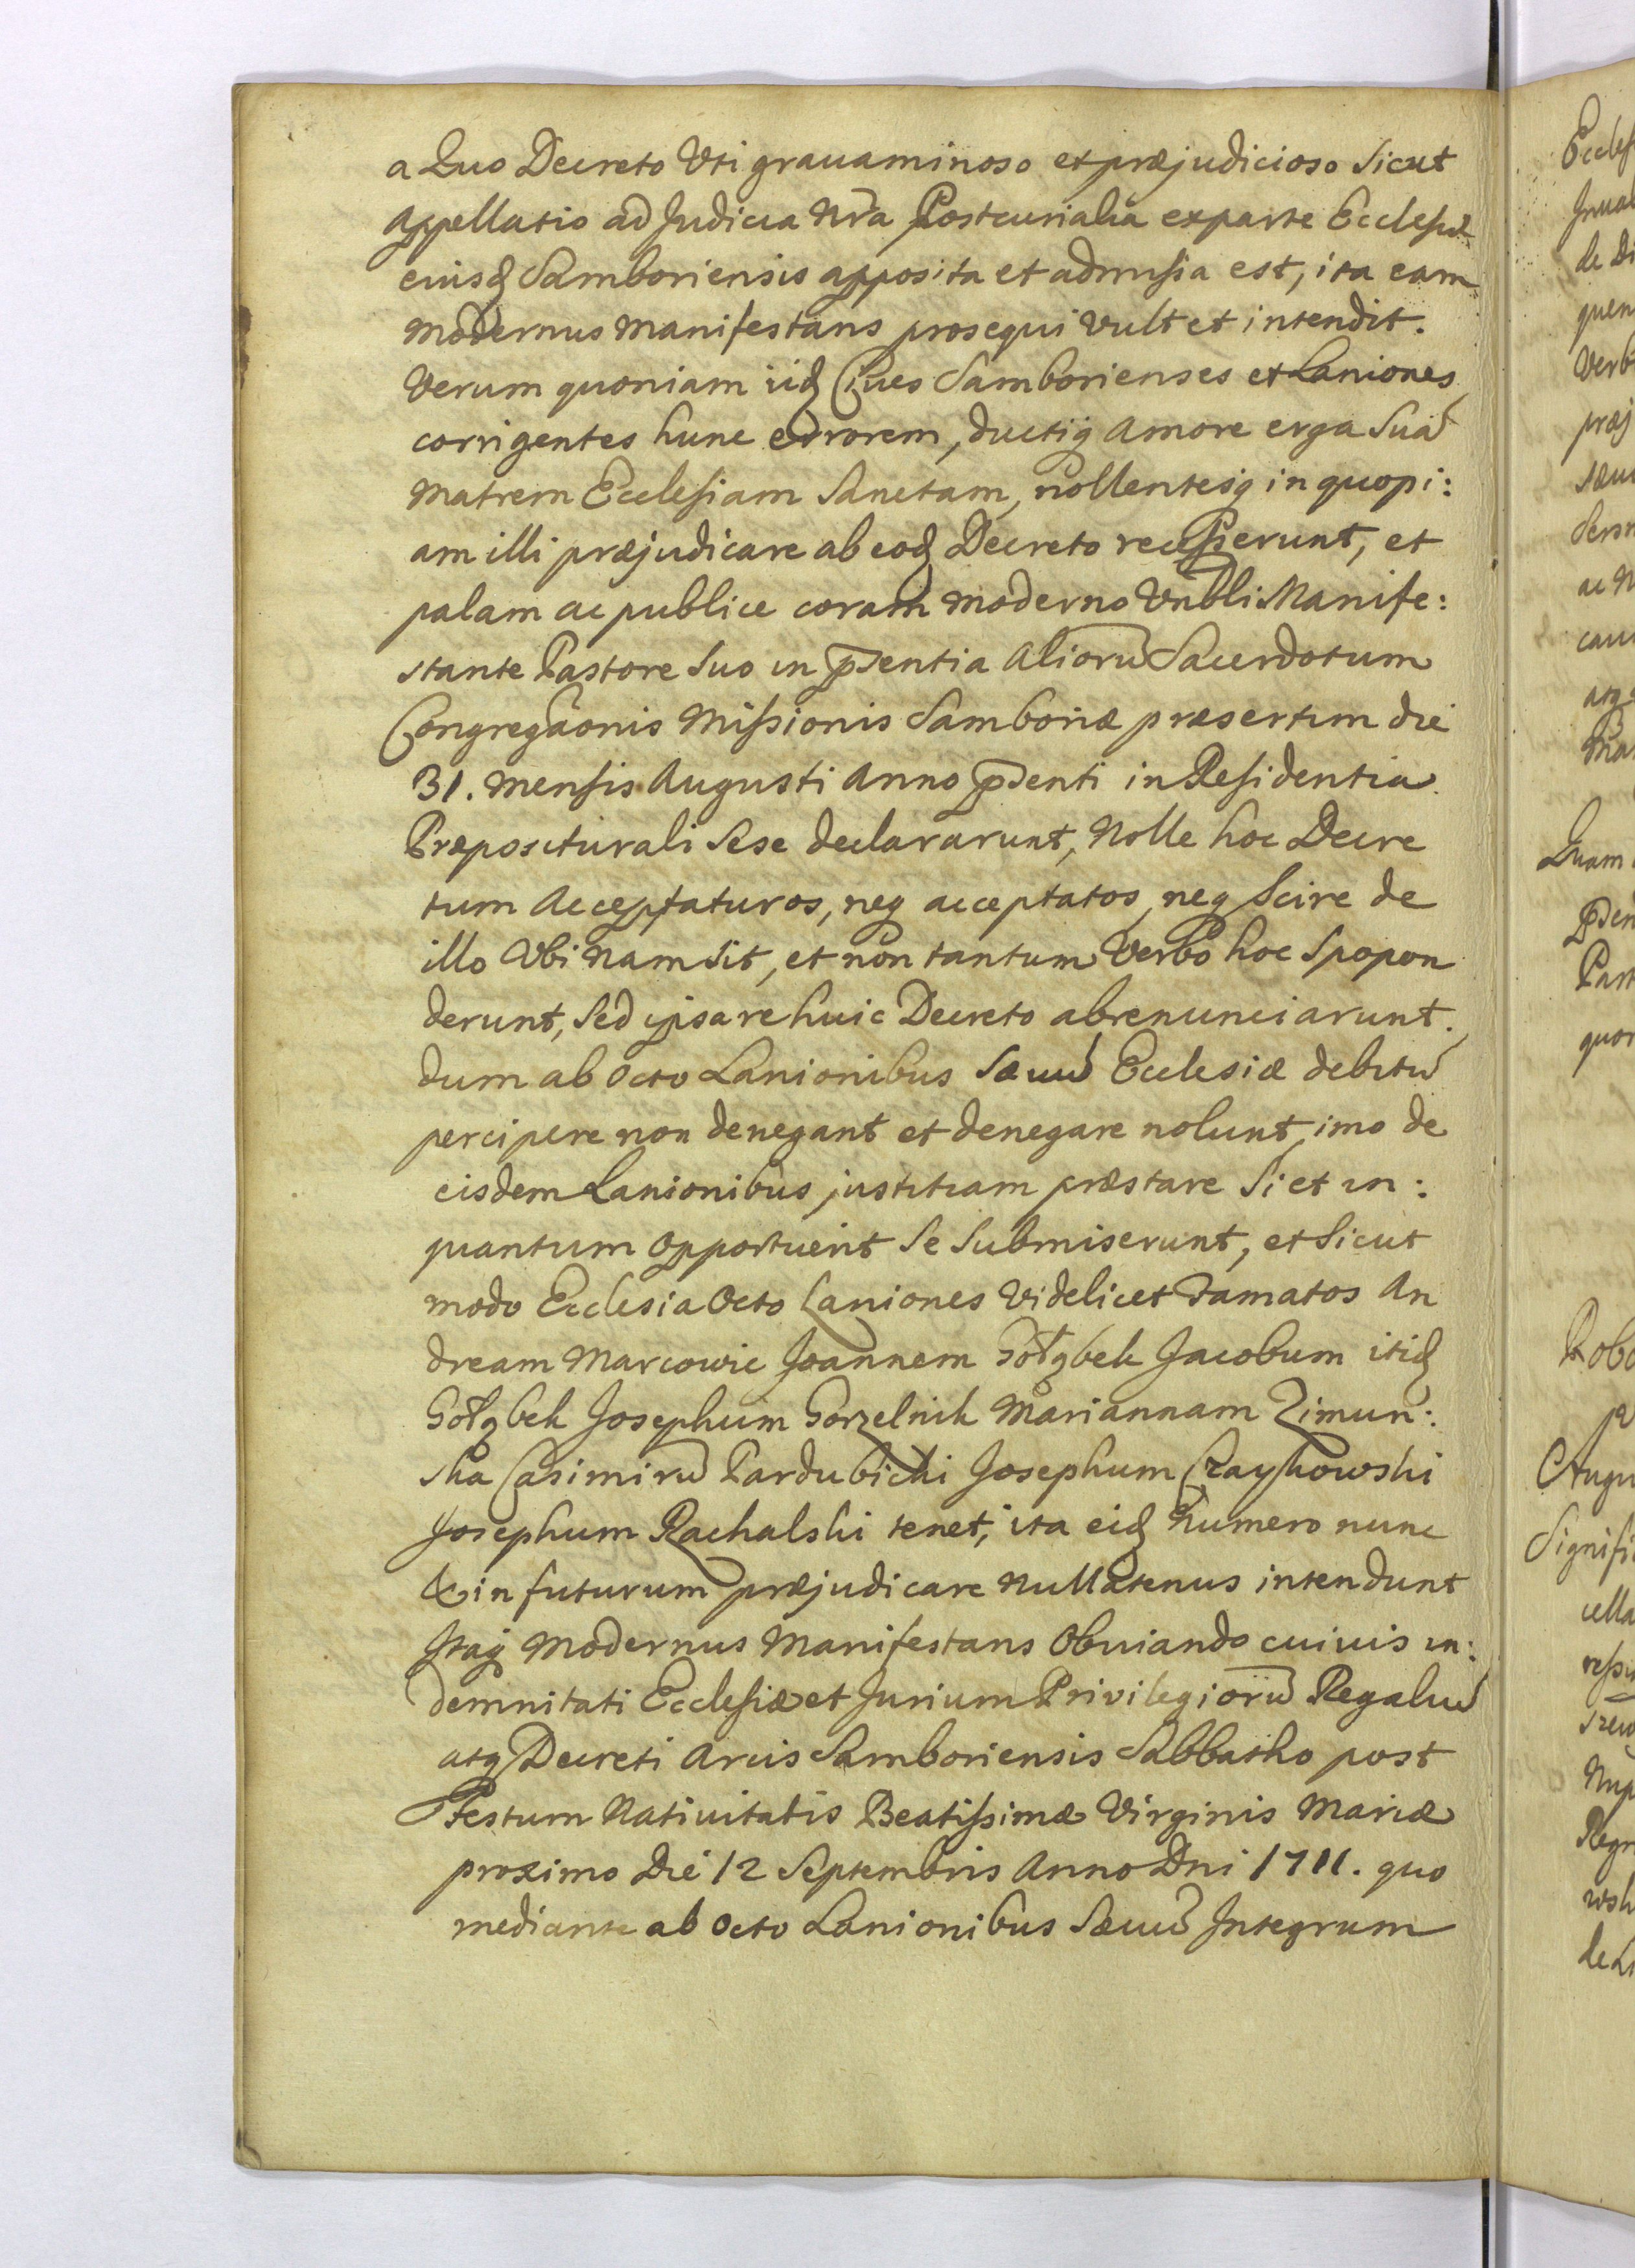 a Quo Decreto Uti grauaminoso et præjudicioso Sicut
Appellatio ad Judicia Nr̃a Postcurialia exparte Ecclesiæ
eiusq Samboriensis apposita et admissa est, ita eam
Modernus Manifestans prosequi vult et intendit.
Verum quoniam iidq Ciues Samborienses et Laniones
corrigentes hunc errorem, ductiq Amore erga Suã
Matrem Ecclesiam Sanctam, nollentesq in quopi:
am illi præjudicare ab eodq Decreto recesserunt, et
palam ac publice coram moderno Vnbli Manife:
stante Pastore Suo in p̃sentia Aliorũ Sacerdotum
Congregãonis Missionis Samboriæ præsertim die
31. Mensis Augusti Anno p̃senti in Residentia
Præpositurali Sese declararunt, Nolle hoc Decre
tum Acceptaturos, neq acceptatos, neq Scire de
illo Vbi Nam Sit, et non tantum Verbo hoc Spopon
derunt, Sed ipsa re huic Decreto abrenunciarunt.
dum ab Octo Lanionibus Sæuũ Ecclesiæ debitũ
percipere non denegant et denegare nolunt, imo de
eisdem Lanionibus justitiam præstare Si et in:
quantum Opportuerit Se Submiserunt, et Sicut
modo Ecclesia Octo Laniones Videlicet Famatos An
dream Marcowic Joannem Gołąbek Jacobum itidq
Gołąbek Josephum Gorzelnik Mariannam Zimun:
ska Casimirũ Pardubicki Josephum Czaykowski
Josephum Rachalski tenet, ita eidq Numero nunc
& in futurum præjudicare Nullatenus intendunt
Itaq Modernus Manifestans Obuiando cuiuis in:
demnitati Ecclesiæ et Jurium Privilegiorũ Regaliũ
atq Decreti Arcis Samboriensis Sabbatho post
Festum Natiuitatis Beatissimæ Virginis Mariæ
proximo Die 12 Septembris Anno Dni 1711. quo
mediante ab Octo Lanionibus Sæuũ Integrum